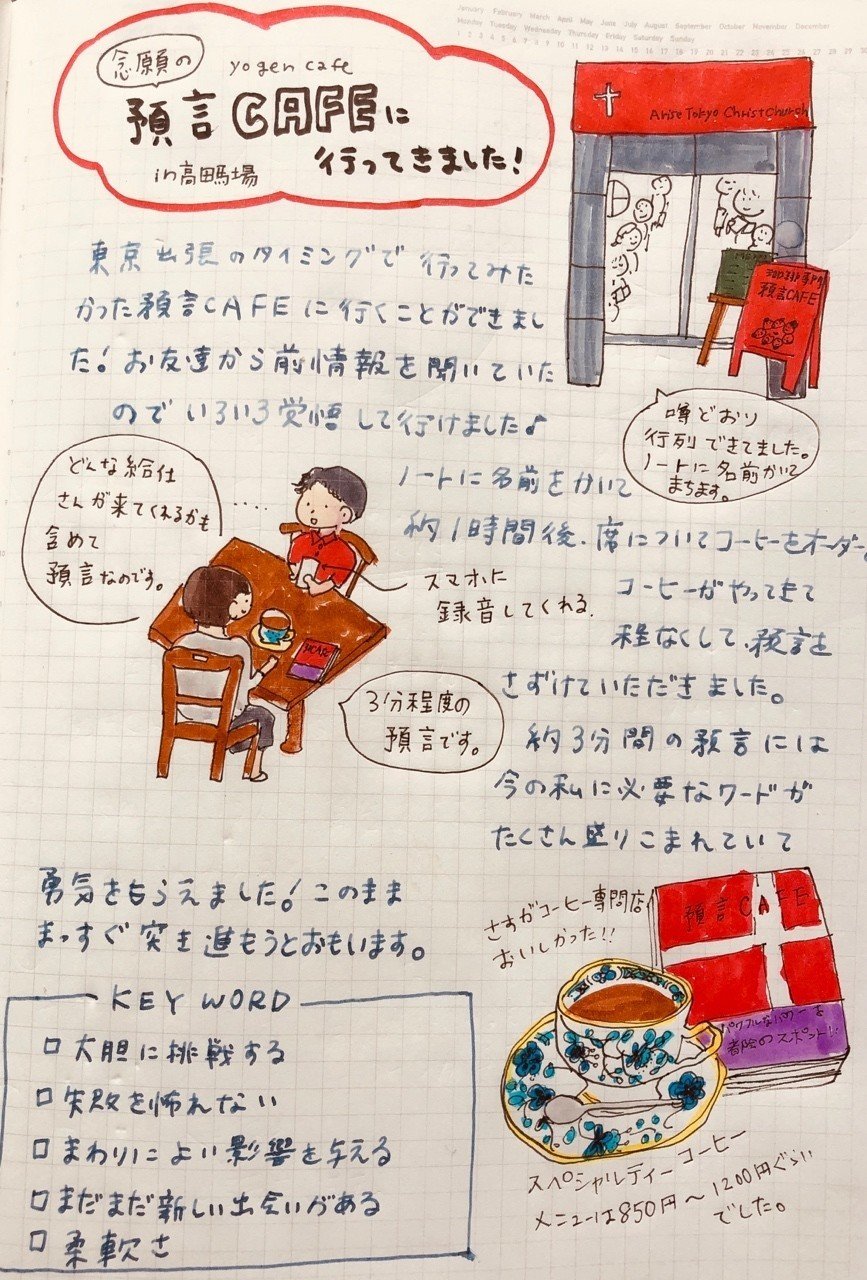 January February March April May June July August September October November December
Monday Tuesday Wednesday Thursday Friday Saturday Sunday
1 2 3 4 5 6 7 8 9 10 11 12 13 14 15 16 17 18 19 20 21 22 23 24 25 26 27 28 29
念願の
yogen cafe
預言CAFEに
in高田馬場
行ってきました!
Arise Tokyo Christ Church
珈琲専門
預言CAFE
東京出張のタイミングで行ってみた
かった預言CAFEに行くことができまし
た!お友達から前情報を聞いていた
のでいろいろ覚悟して行けました♪
噂どおり
行列できてました。
ノートに名前かいて
まちます。
どんな給仕
さんが来てくれるかも
含めて
預言なのです。
‥‥
ノートに名前をかいて
約1時間後、席についてコーヒーをオーダー。
スマホに
録音してくれる.
コーヒーがやってきて
程なくして、預言を
さずけていただきました。
3分程度の
預言です。
約3分間の預言には
今の私に必要なワードが
たくさん盛りこまれていて
勇気をもらえました!このまま
まっすぐ突き進もうとおもいます。
さすがコーヒー専門店
おいしかった!!
預言CAFE
パワフルなパワーを
のスポット
KEY WORD
□ 大胆に挑戦する
□ 失敗を怖れない
□ まわりによい影響を与える
□ まだまだ新しい出会いがある
□ 柔軟さ
スペシャルティーコーヒー
メニューは850円〜1200円ぐらい
でした。